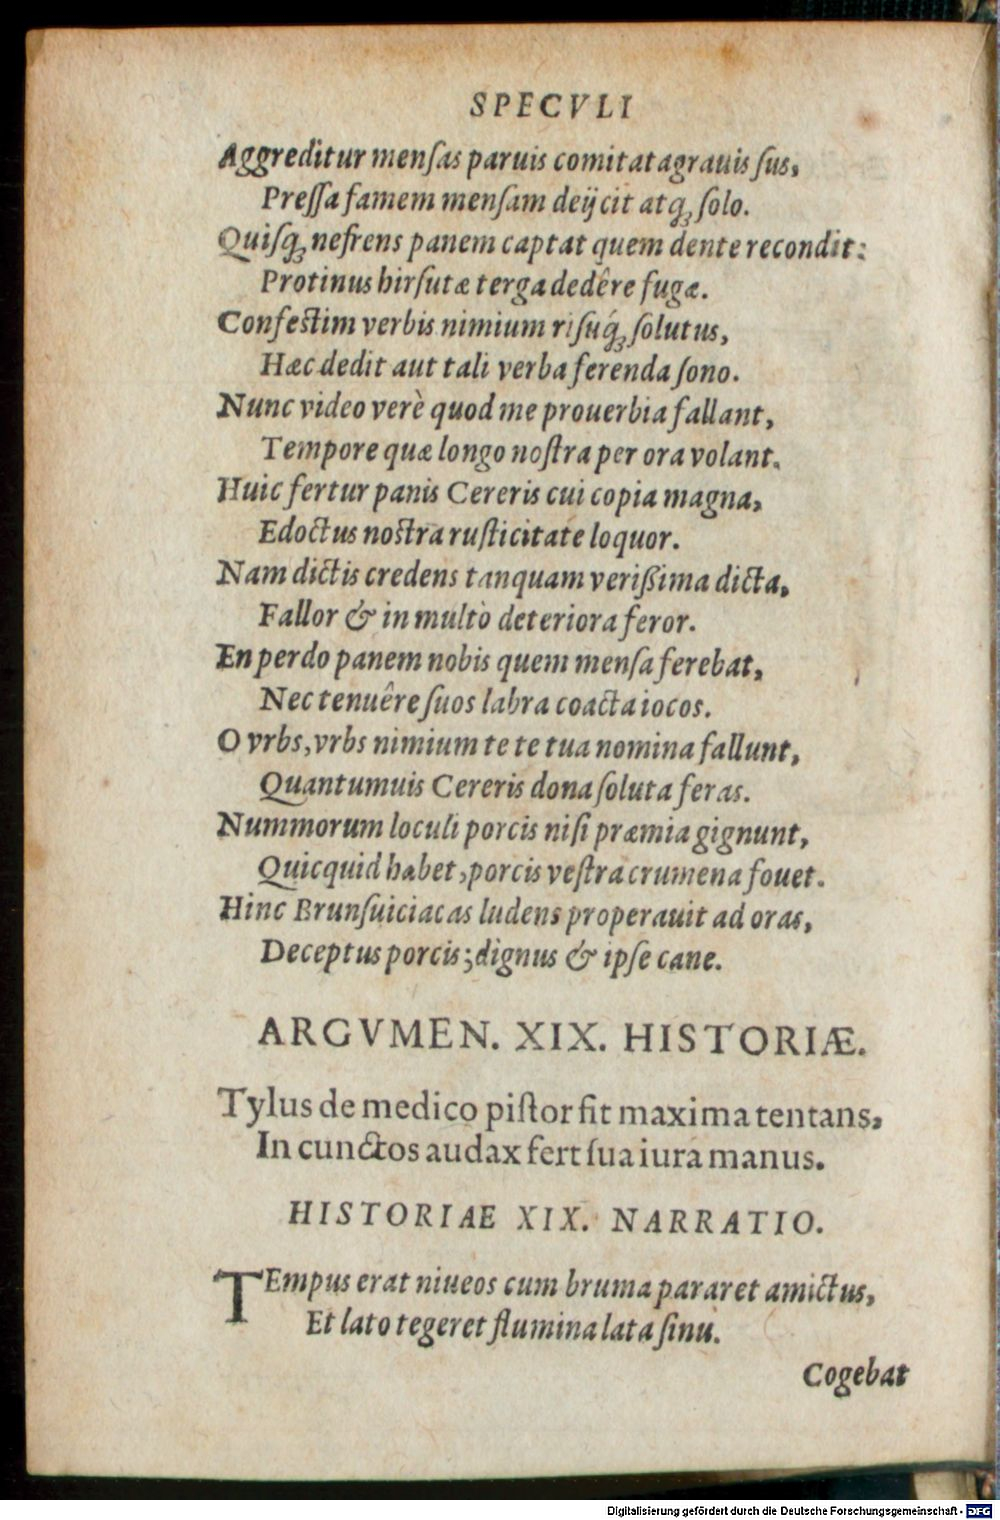 SPECVLI
Aggreditur menſas paruis comitata grauis ſus,
Preſſa famem menſam deijcit atq́ꝫ ſolo.
Quiſq́ꝫ nefrens panem captat quem dente recondit:
Protinus hirſutæ terga dedêre fugæ.
Confeſtim verbis nimium riſuq́ꝫ ſolutus,
Hæc dedit aut tali verba ferenda ſono.
Nunc video verè quod me prouerbia fallant,
Tempore quæ longo noſtra per ora volant.
Huic fertur panis Cereris cui copia magna,
Edoctus noſtra ruſticitate loquor.
Nam dictis credens tanquam verißima dicta,
Fallor & in multò deteriora feror.
En perdo panem nobis quem menſa ferebat,
Nec tenuêre ſuos labra coacta iocos.
O vrbs, vrbs nimium te te tua nomina fallunt,
Quantumuis Cereris dona ſoluta feras.
Nummorum loculi porcis niſi præmia gignunt,
Quicquid habet, porcis veſtra crumena fouet.
Hinc Brunſuiciacas ludens properauit ad oras,
Deceptus porcis; dignus & ipſe cane.
ARGVMEN. XIX. HISTORIÆ.
Tylus de medico piſtor fit maxima tentans,
In cunctos audax fert ſua iura manus.
HISTORIAE XIX. NARRATIO.
TEmpus erat niueos cum bruma pararet amictus,
Et lato tegeret flumina lata ſinu.
Cogebat
Digitalisierung gefördert durch die Deutsche Forschungsgemeinschaft - DFG